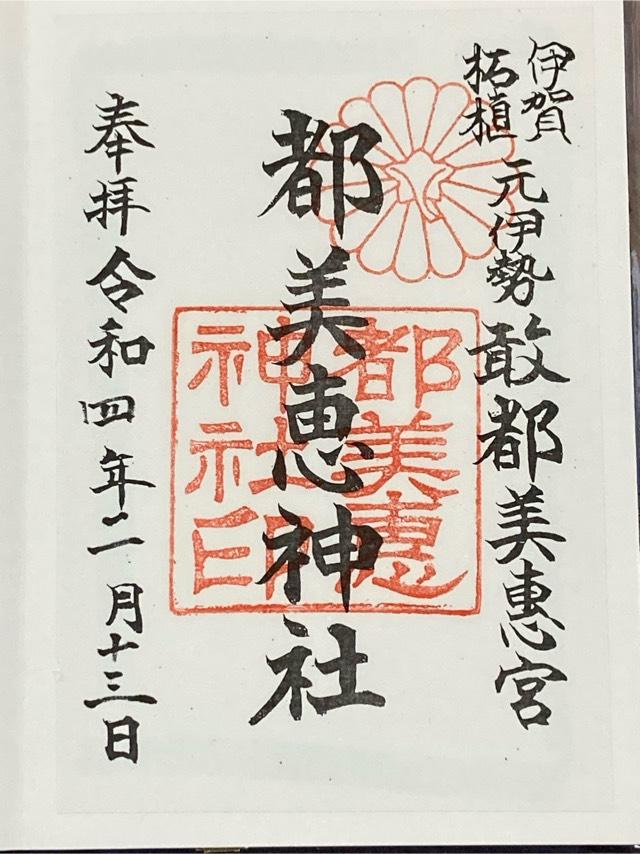 伊賀
柘植
元伊勢 敢都美恵宮
都美恵神社
奉拝 令和四年二月十三日
都美恵
神社印